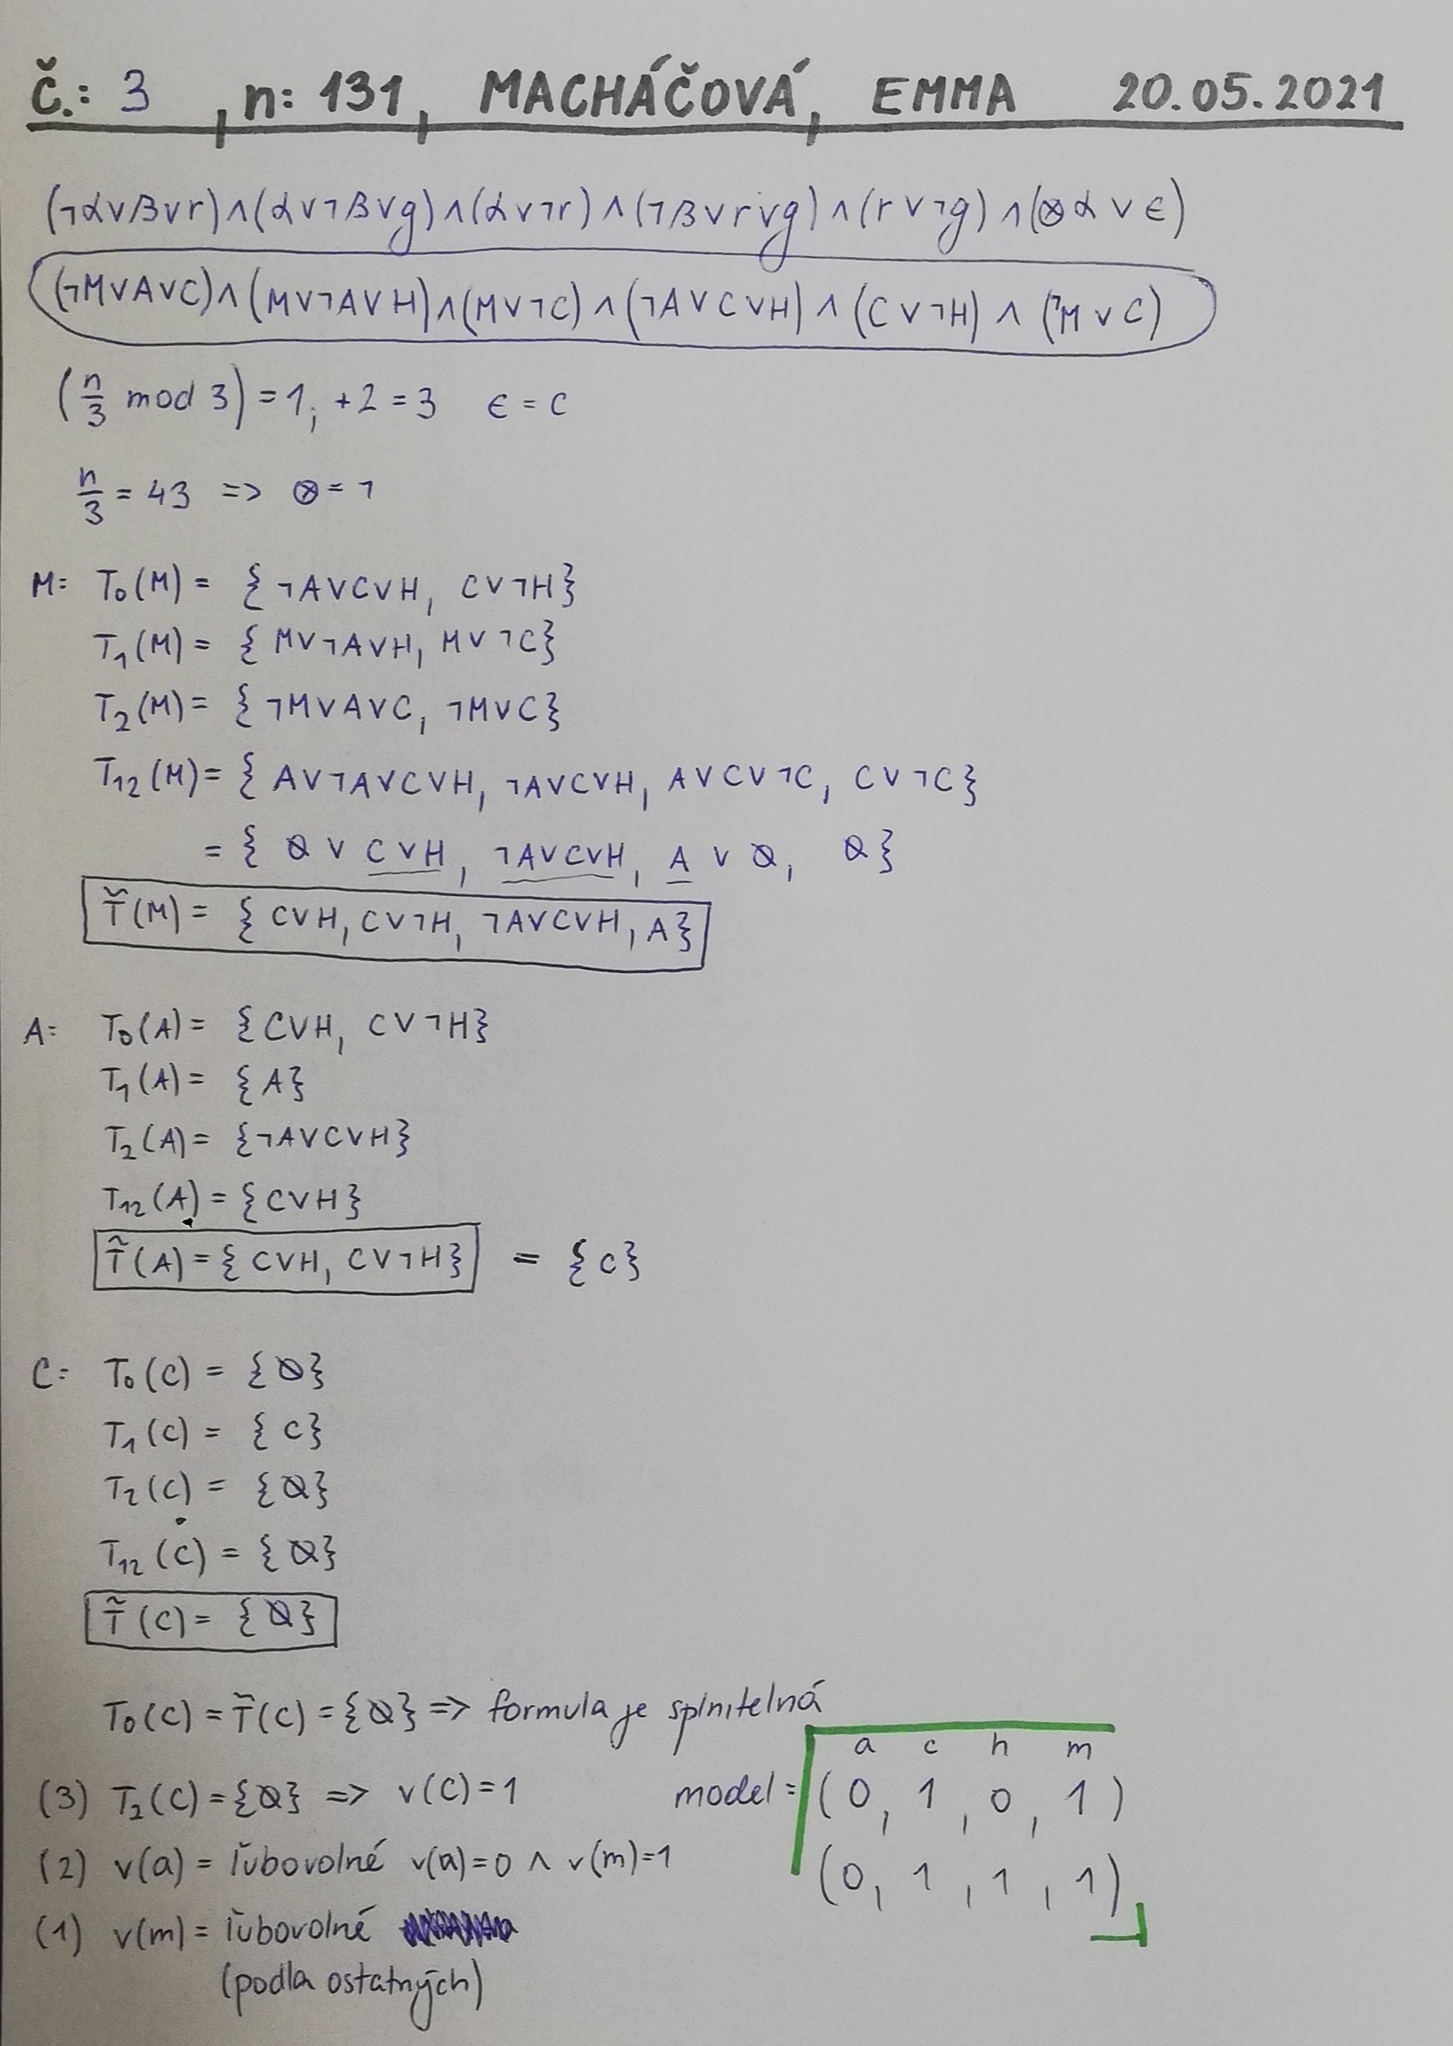 Č.: 3 , n: 131, MACHÁČOVÁ, EMMA 20.05.2021
(¬α∨β∨r)∧(α∨¬β∨g)∧(α∨¬r)∧(¬β∨r∨g)∧(r∨¬g)∧(⊗α∨ϵ)
(¬M∨A∨C)∧(M∨¬A∨H)∧(M∨¬C)∧(¬A∨C∨H)∧(C∨¬H)∧(¬M∨C)
(n/3 mod 3) = 1, +2 = 3 ϵ = C
n/3 = 43 => ⊗ = ¬
M: T₀(M) = {¬A∨C∨H, C∨¬H}
T₁(M) = {M∨¬A∨H, M∨¬C}
T₂(M) = {¬M∨A∨C, ¬M∨C}
T₁₂(M) = {A∨¬A∨C∨H, ¬A∨C∨H, A∨C∨¬C, C∨¬C}
= {∅ ∨ C∨H, ¬A∨C∨H, A ∨ ∅, ∅}
T̃(M) = {C∨H, C∨¬H, ¬A∨C∨H, A}
A: T₀(A) = {C∨H, C∨¬H}
T₁(A) = {A}
T₂(A) = {¬A∨C∨H}
T₁₂(A) = {C∨H}
T̃(A) = {C∨H, C∨¬H} = {C}
C: T₀(C) = {∅}
T₁(C) = {C}
T₂(C) = {∅}
T₁₂(C) = {∅}
T̃(C) = {∅}
T₀(C) = T̃(C) = {∅} => formula je splnitelná
a c h m
(3) T₂(C) = {∅} => v(C) = 1 model = (0, 1, 0, 1)
(2) v(a) = ľubovolné v(a)=0 ∧ v(m)=1 (0, 1, 1, 1)
(1) v(m) = ľubovolné
(podla ostatných)